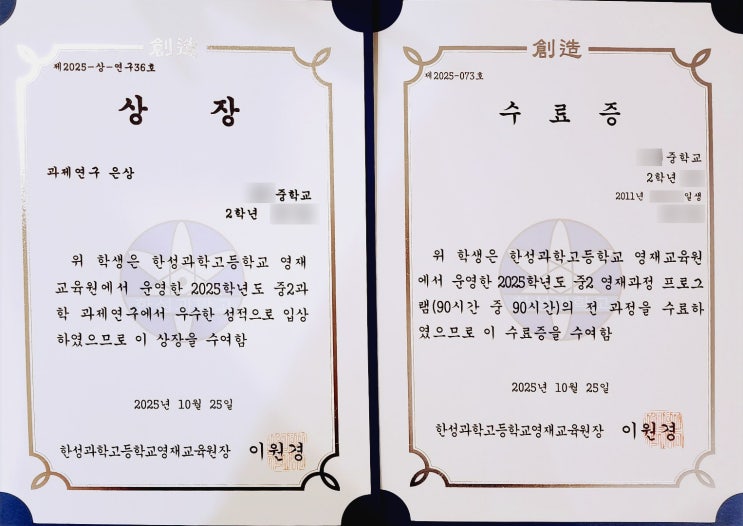 創造
제2025-상-연구36호
상 장
과제연구 은상
중학교
2학년
위 학생은 한성과학고등학교 영재
교육원에서 운영한 2025학년도 중2과
학 과제연구에서 우수한 성적으로 입상
하였으므로 이 상장을 수여함
2025년 10월 25일
한성과학고등학교영재교육원장 이원경
創造
제2025-073호
수 료 증
중학교
2학년
2011년 일생
위 학생은 한성과학고등학교 영재교육원
에서 운영한 2025학년도 중2 영재과정 프로그
램(90시간 중 90시간)의 전 과정을 수료하
였으므로 이 수료증을 수여함
2025년 10월 25일
한성과학고등학교영재교육원장 이원경